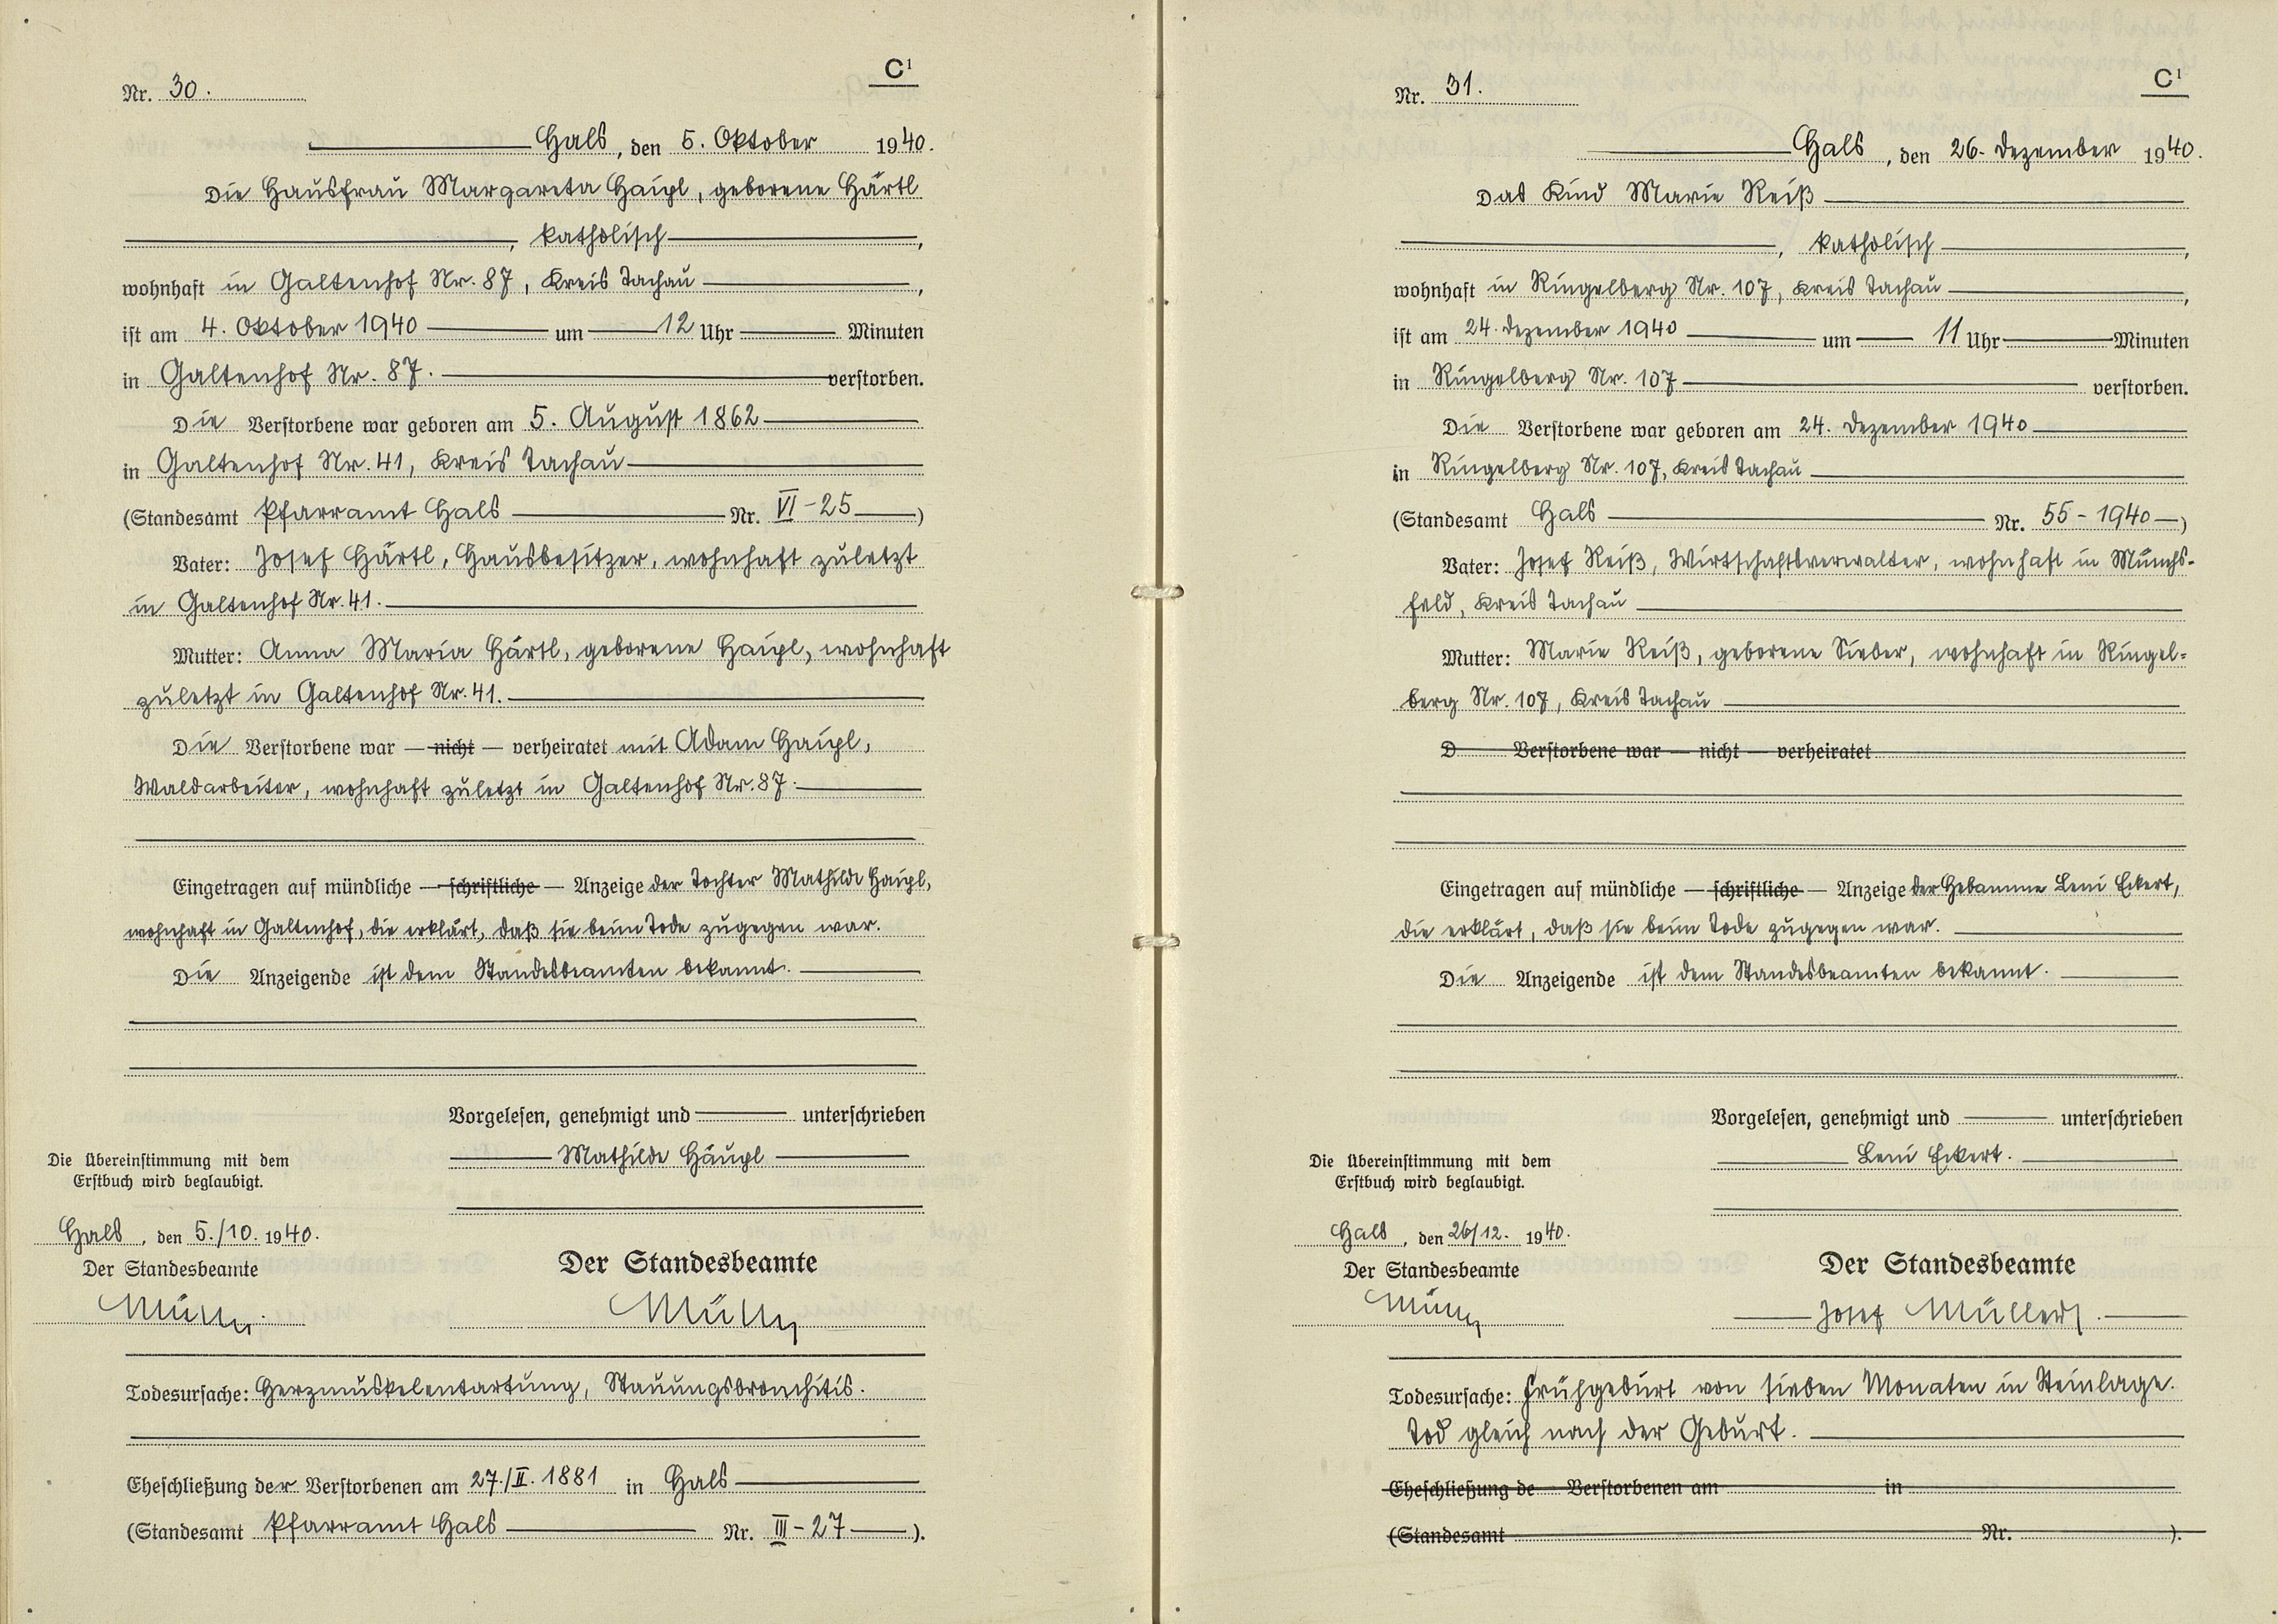 C¹
Nr. 30.
Hals, den 5. Oktober 1940.
Die Hausfrau Margareta Häupl, geborene Härtl
, katholisch ,
wohnhaft in Galtenhof Nr. 87, Kreis Tachau ,
ist am 4. Oktober 1940 um 12 Uhr Minuten
in Galtenhof Nr. 87. verstorben.
Die Verstorbene war geboren am 5. August 1862
in Galtenhof Nr. 41, Kreis Tachau
(Standesamt Pfarramt Hals Nr. VI-25 )
Vater: Josef Härtl, Hausbesitzer, wohnhaft zuletzt
in Galtenhof Nr. 41.
Mutter: Anna Maria Härtl, geborene Häupl, wohnhaft
zuletzt in Galtenhof Nr. 41.
Die Verstorbene war — nicht — verheiratet mit Adam Häupl,
Waldarbeiter, wohnhaft zuletzt in Galtenhof Nr. 87.
Eingetragen auf mündliche — schriftliche — Anzeige der Tochter Mathilde Häupl,
wohnhaft in Galtenhof, die erklärt, daß sie beim Tode zugegen war.
Die Anzeigende ist dem Standesbeamten bekannt.
Vorgelesen, genehmigt und unterschrieben
Mathilde Häupl
Die Übereinstimmung mit dem
Erstbuch wird beglaubigt.
Hals, den 5./10. 1940.
Der Standesbeamte
Müller
Der Standesbeamte
Müller
Todesursache: Herzmuskelentartung, Stauungsbronchitis.
Eheschließung der Verstorbenen am 27./II. 1881 in Hals
(Standesamt Pfarramt Hals Nr. III-27 ).
C¹
Nr. 31.
Hals, den 26. Dezember 1940.
Das Kind Marie Reiß
, katholisch ,
wohnhaft in Ringelberg Nr. 107, Kreis Tachau ,
ist am 24. Dezember 1940 um 11 Uhr Minuten
in Ringelberg Nr. 107 verstorben.
Die Verstorbene war geboren am 24. Dezember 1940
in Ringelberg Nr. 107, Kreis Tachau
(Standesamt Hals Nr. 55-1940 )
Vater: Josef Reiß, Wirtschaftsverwalter, wohnhaft in Münchs-
feld, Kreis Tachau
Mutter: Marie Reiß, geborene Sieber, wohnhaft in Ringel-
berg Nr. 107, Kreis Tachau
D Verstorbene war — nicht — verheiratet
Eingetragen auf mündliche — schriftliche — Anzeige der Hebamme Leni Eckert,
die erklärt, daß sie beim Tode zugegen war.
Die Anzeigende ist dem Standesbeamten bekannt.
Vorgelesen, genehmigt und unterschrieben
Leni Eckert.
Die Übereinstimmung mit dem
Erstbuch wird beglaubigt.
Hals, den 26/12. 1940.
Der Standesbeamte
Müller
Der Standesbeamte
Josef Müller
Todesursache: Frühgeburt von sieben Monaten in Steinlage.
Tod gleich nach der Geburt.
Eheschließung de Verstorbenen am in
(Standesamt Nr. ).